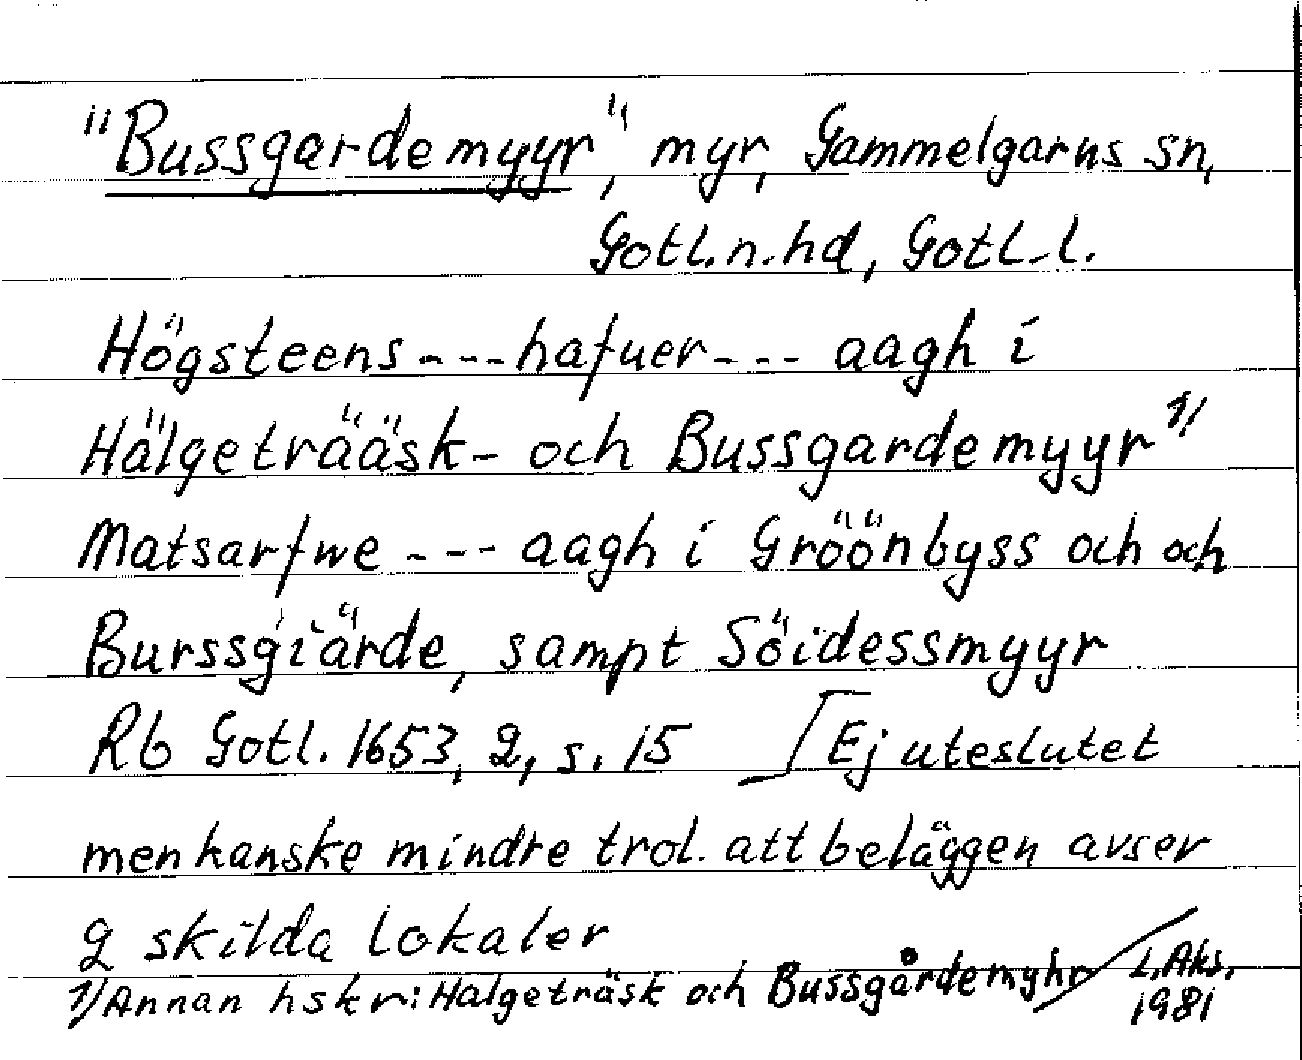 "Bussgardemyyr", myr, Gammelgarns sn,
Gotl.n.hd, Gotl.l.
Högsteens --- hafuer --- aagh i
Hälgeträäsk- och Bussgardemyyr 1/
Matsarfwe --- aagh i Gröönbyss och och
Burssgiärde, sampt Söidessmyyr
Rb Gotl. 1653, 2, s. 15 [Ej uteslutet
men kanske mindre trol. att beläggen avser
2 skilda lokaler
1/ Annan hskr: Halgeträsk och Bussgårdemyhr
L.Aks.
1981